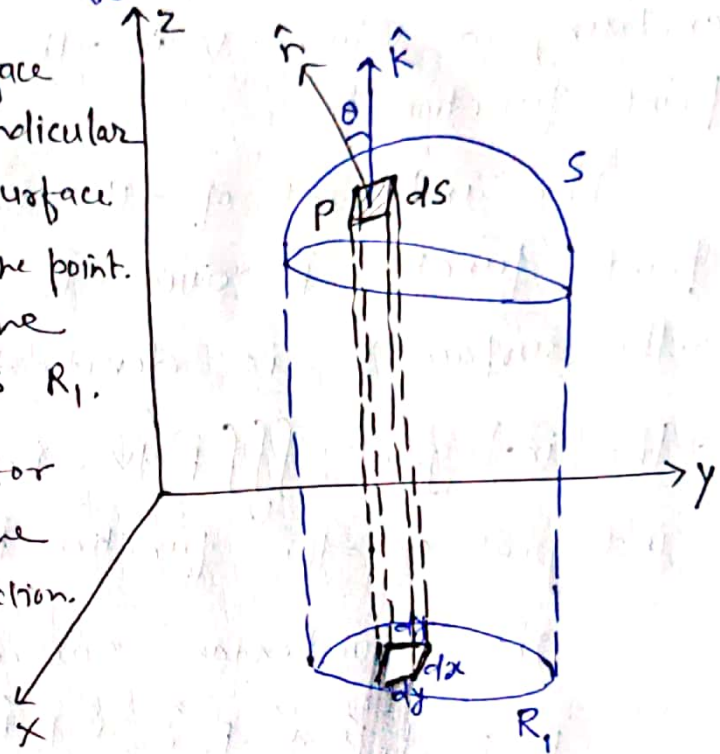 z
ace
ndicular
urface
he point.
ne
s R₁.
or
he
ction.
n̂
k̂
θ
S
P
dS
y
dx
dy
R₁
x